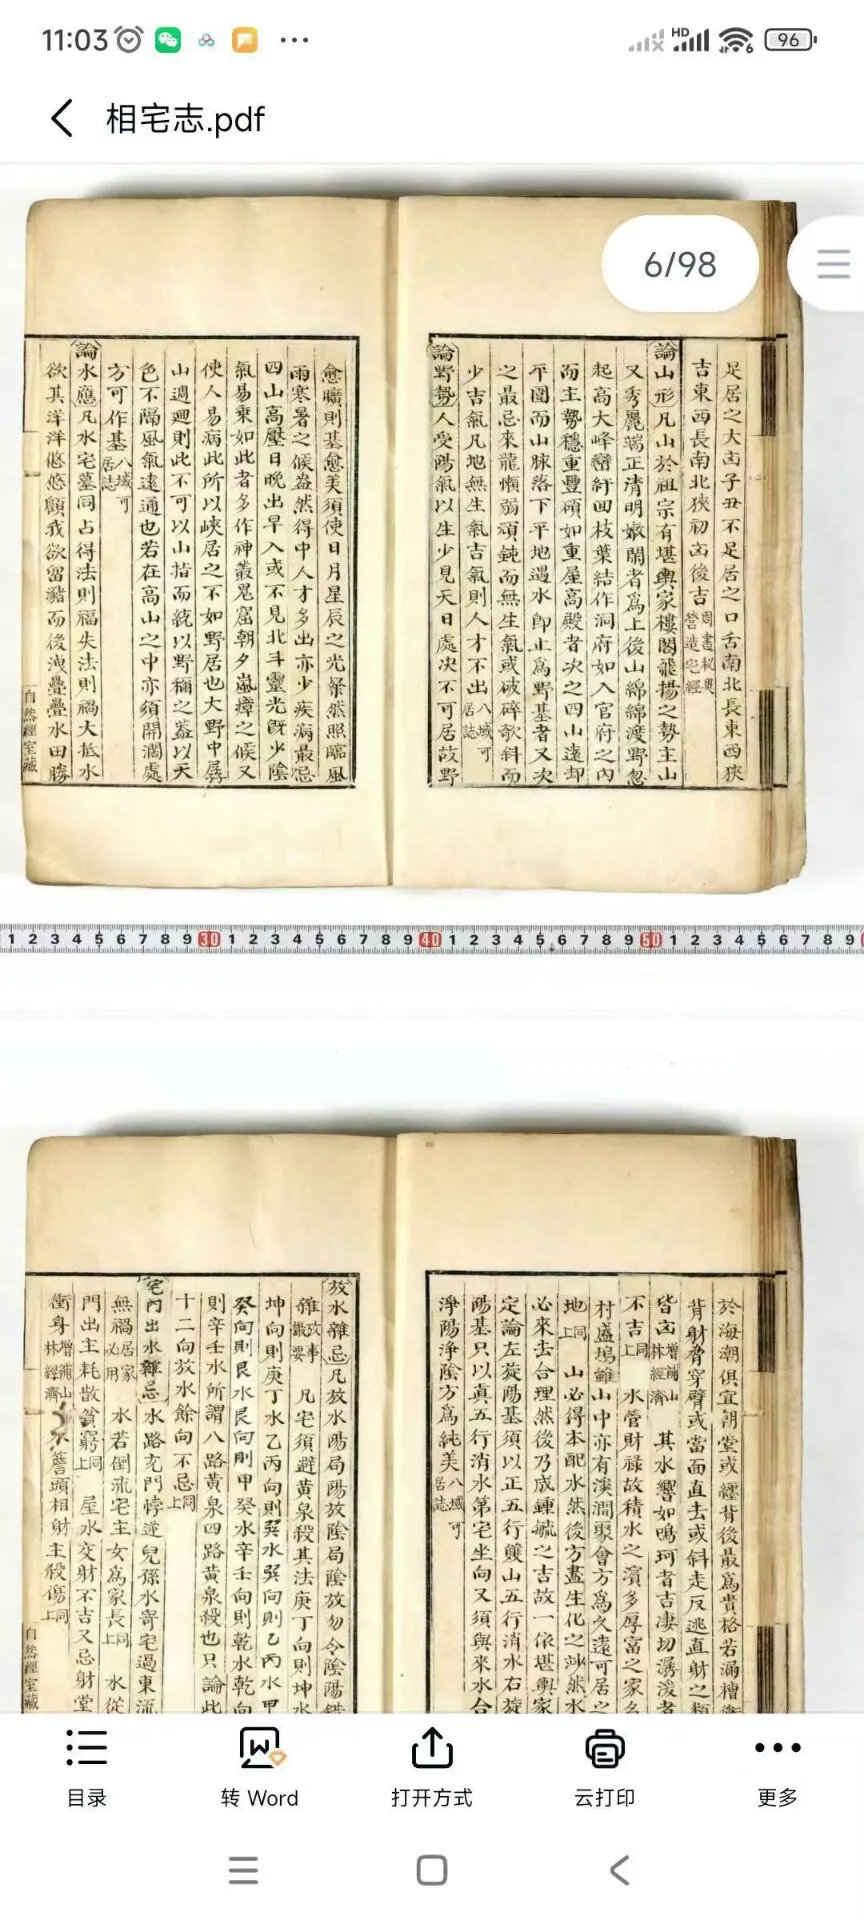 11:03
HD
6
96
相宅志.pdf
6/98
足居之大凶子丑不足居之口舌南北長東西狹
吉東西長南北狹初凶後吉周書秘奥營造宅經
論山形凡山於祖宗有堪輿家樓閣飛揚之勢主山
又秀麗端正清明嫩開者爲上後山綿綿渡野忽
起高大峰巒紆回枝葉結作洞府如入官府之內
而主勢穩重豐碩如重屋高殿者次之四山遠却
平圍而山脉落下平地遇水卽止爲野基者又次
之最忌來龍懶弱頑鈍而無生氣或破碎欹斜而
少吉氣凡地無生氣吉氣則人才不出八域可居誌
論野勢人受陽氣以生少見天日處决不可居故野
愈曠則基愈美須使日月星辰之光粲然照臨風
雨寒暑之候盎然得中人才多出亦少疾病最忌
四山高壓日晚出早入或不見北斗靈光旣少陰
氣易乘如此者多作神叢鬼窟朝夕嵐瘴之候又
使人易病此所以峽居之不如野居也大野中孱
山週廻則此不可以山指而統以野稱之盖以天
色不隔風氣遠通也若在高山之中亦須開濶處
方可作基八域可居誌
論水應凡水宅墓同占得法則福失法則禍大抵水
欲其洋洋悠悠顧我欲留瀦而後洩疊疊水田勝
自然經室藏
1 2 3 4 5 6 7 8 9 30 1 2 3 4 5 6 7 8 9 40 1 2 3 4 5 6 7 8 9 50 1 2 3 4 5 6 7 8 9
於海潮俱宜朝堂或纏背後最爲貴格若漏槽
背射脅穿臂或當面直去或斜走反逃直射之類
皆凶增補山林經濟 其水響如鳴珂者吉淒切湯浚者
不吉同上 水管財祿故積水之濱多厚富之家名
村盛塢雖山中亦有溪澗聚會方爲久遠可居之
地同上 山必得本配水然後方盡生化之玅然水
必來去合理然後乃成鍾毓之吉故一依堪輿家
定論左旋陽基須以正五行雙山五行消水右旋
陽基只以眞五行消水第宅坐向又須與來水合
淨陽淨陰方爲純美八域可居誌
放水雜忌凡放水陽局陽放陰局陰放勿令陰陽錯
雜攷事撮要 凡宅須避黄泉殺其法庚丁向則坤水
坤向則庚丁水乙丙向則巽水巽向則乙丙水甲
癸向則艮水艮向則甲癸水辛壬向則乾水乾向
則辛壬水所謂八路黄泉四路黄泉殺也只論此
十二向放水餘向不忌同上
宅內出水雜忌水路充門悖逆兒孫水寄宅過東流
無禍居家必用 水若倒流宅主女爲家長同上 水從
門出主耗散貧窮同上 屋水交射不吉又忌射堂
衝身增補山林經濟 簷頭相射主殺傷同上
自然經室藏
目录
转 Word
打开方式
云打印
更多